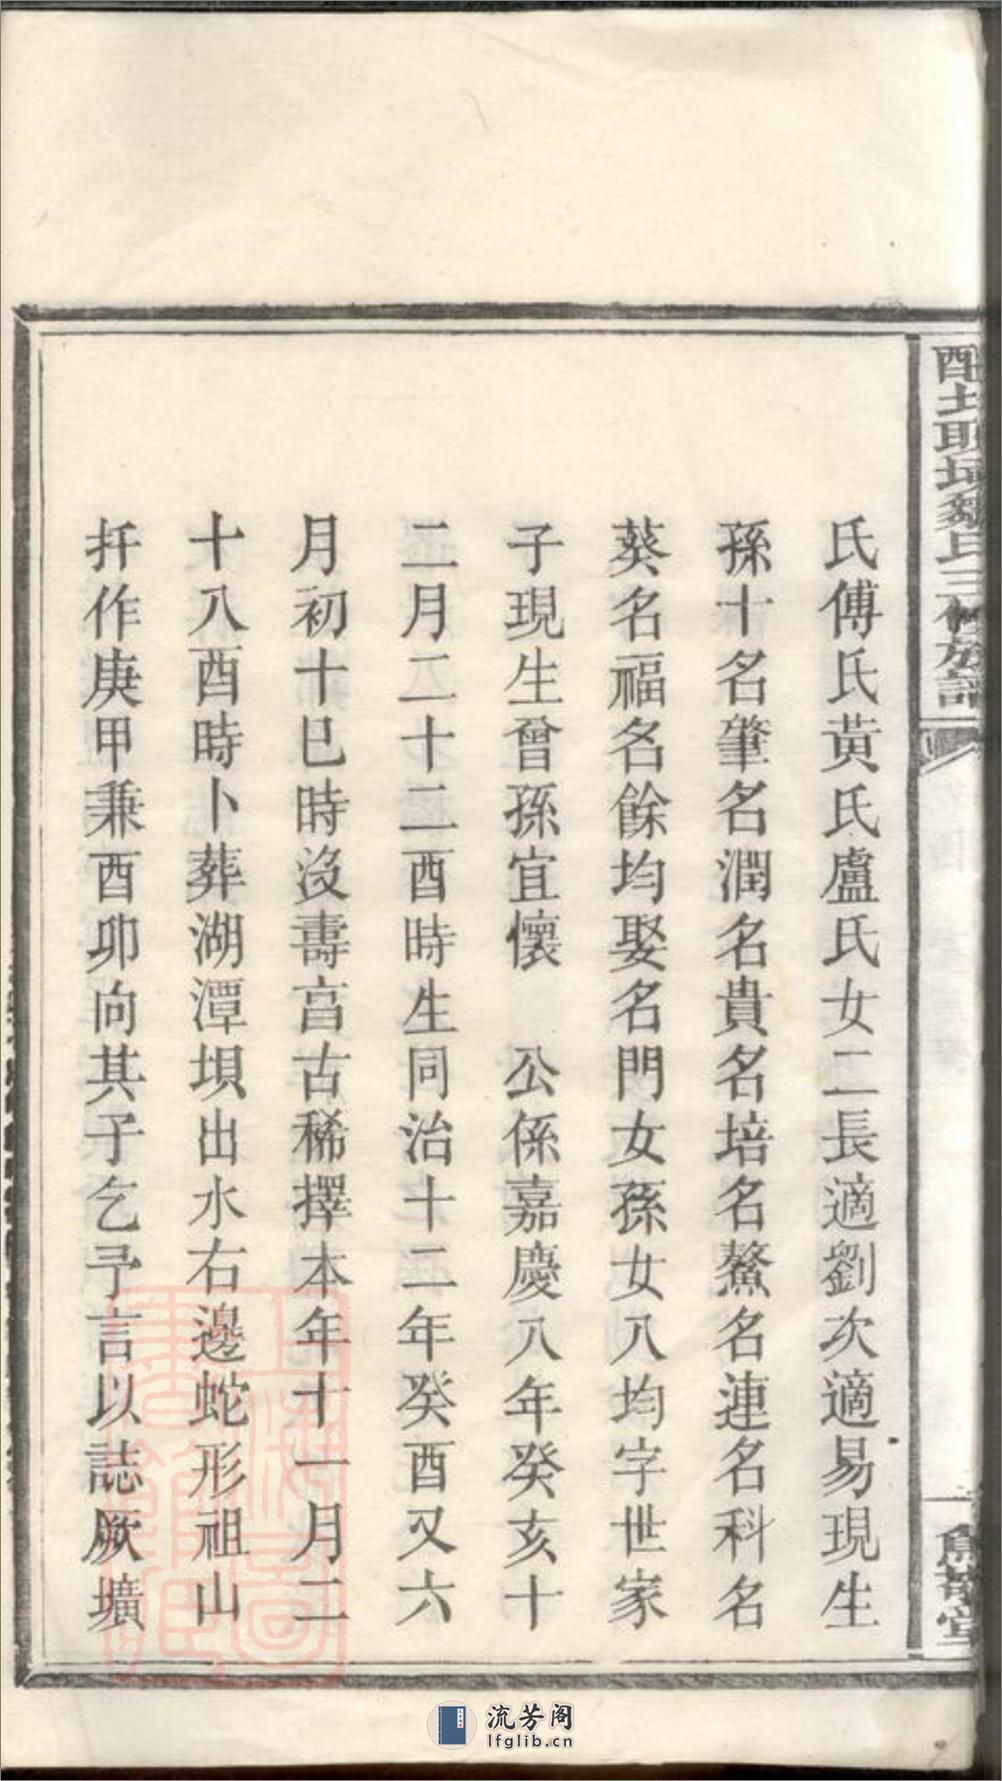 氏傅氏黃氏盧氏女二長適劉次適易現生
孫十名肇名潤名貴名培名鰲名連名科名
葵名福名餘均娶名門女孫女八均字世家
子現生曾孫宜懷　公係嘉慶八年癸亥十
二月二十二酉時生同治十二年癸酉又六
月初十巳時沒壽高古稀擇本年十一月二
十八酉時卜葬湖潭垻出水右邊蛇形祖山
扦作庚甲兼酉卯向其子乞予言以誌厥壙
流芳阁
lfglib.cn